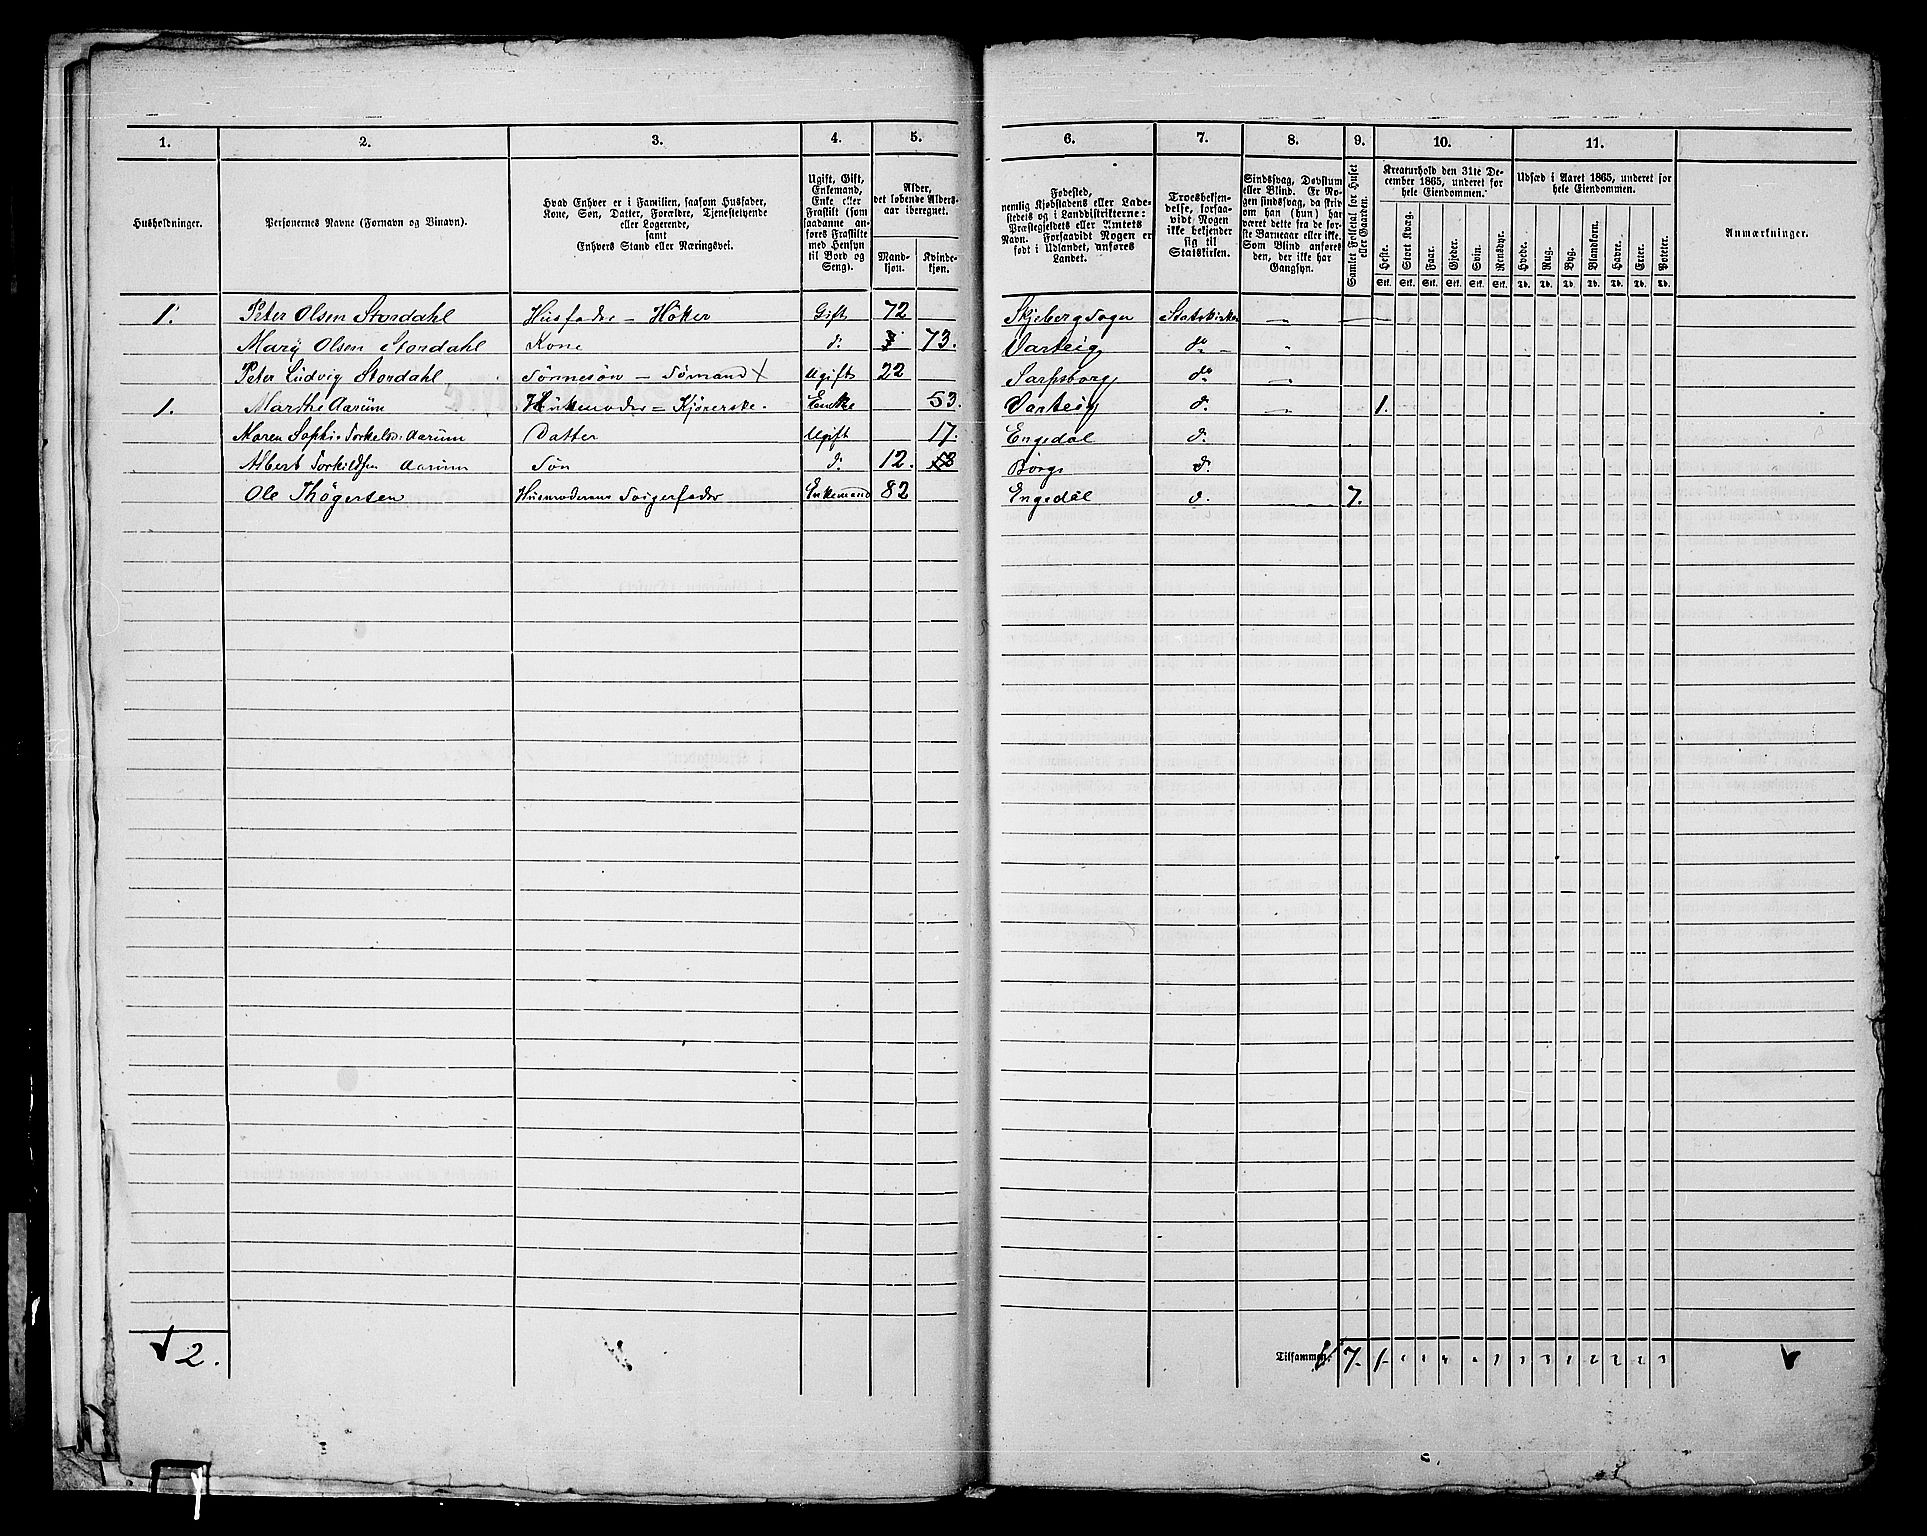 1. 2. 3. 4. 5. 6. 7. 8. 9. 10. 11.
Husholdninger.
Personernes Navne (Fornavn og Binavn).
Hvad Enhver er i Familien, saasom Husfader,
Kone, Søn, Datter, Forældre, Tjenestetyende
eller Logerende,
samt
Enhvers Stand eller Næringsvei.
Ugift, Gift,
Enkemand,
Enke eller
Fraskilt (som
saadanne an-
føres Fraskilte
med Hensyn
til Bord og
Seng).
Alder,
det løbende Alders-
aar iberegnet.
Mand-
kjøn.
Kvinde-
kjøn.
Fødested,
nemlig Kjøbstadens eller Lade-
stedets og i Landdistrikterne:
Præstegjeldets eller Amtets
Navn. Forsaavidt Nogen er
født i Udlandet, anføres
Landet.
Troesbekjen-
delse, forsaa-
vidt Nogen
ikke bekjender
sig til
Statskirken.
Sindssvag, Døvstum
eller Blind. Er No-
gen sindssvag, da skriv
om han (hun) har
været dette fra de før-
ste Barneaar eller ikke.
Som Blind anføres
den, der ikke har
Gangsyn.
Samlet Folketal for Huset
eller Gaarden.
Kreaturhold den 31te De-
cember 1865, underet for
hele Eiendommen.
Heste. Stort Kvæg. Faar. Gjeder. Svin. Rensdyr.
Stk. Stk. Stk. Stk. Stk. Stk.
Udsæd i Aaret 1865, underet for
hele Eiendommen.
Hvede. Rug. Byg. Blandkorn. Havre. Erter. Poteter.
Td. Td. Td. Td. Td. Td. Td.
Anmærkninger.
1. Peter Olsen Stordahl Husfader - Høker Gift 72 Skjeberg Sogn Statskirken
Mary Olsen Stordahl Kone do 73. Varteig do
Peter Ludvig Stordahl Sønnesøn - Sømand X Ugift 22 Sarpsborg do
1. Marthe Aarum Kjørerske. Enke 53. Varteig d. 1.
Maren Sophie Torkelsd: Aarum Datter Ugift 17. Engedal d.
Albert Torkildsen Aarum Søn d. 12. Borge d.
Ole Thøgersen Husmoderens Svigerfader Enkemand 82 Engedal d. 7.
2. Tilsammen 7. 1